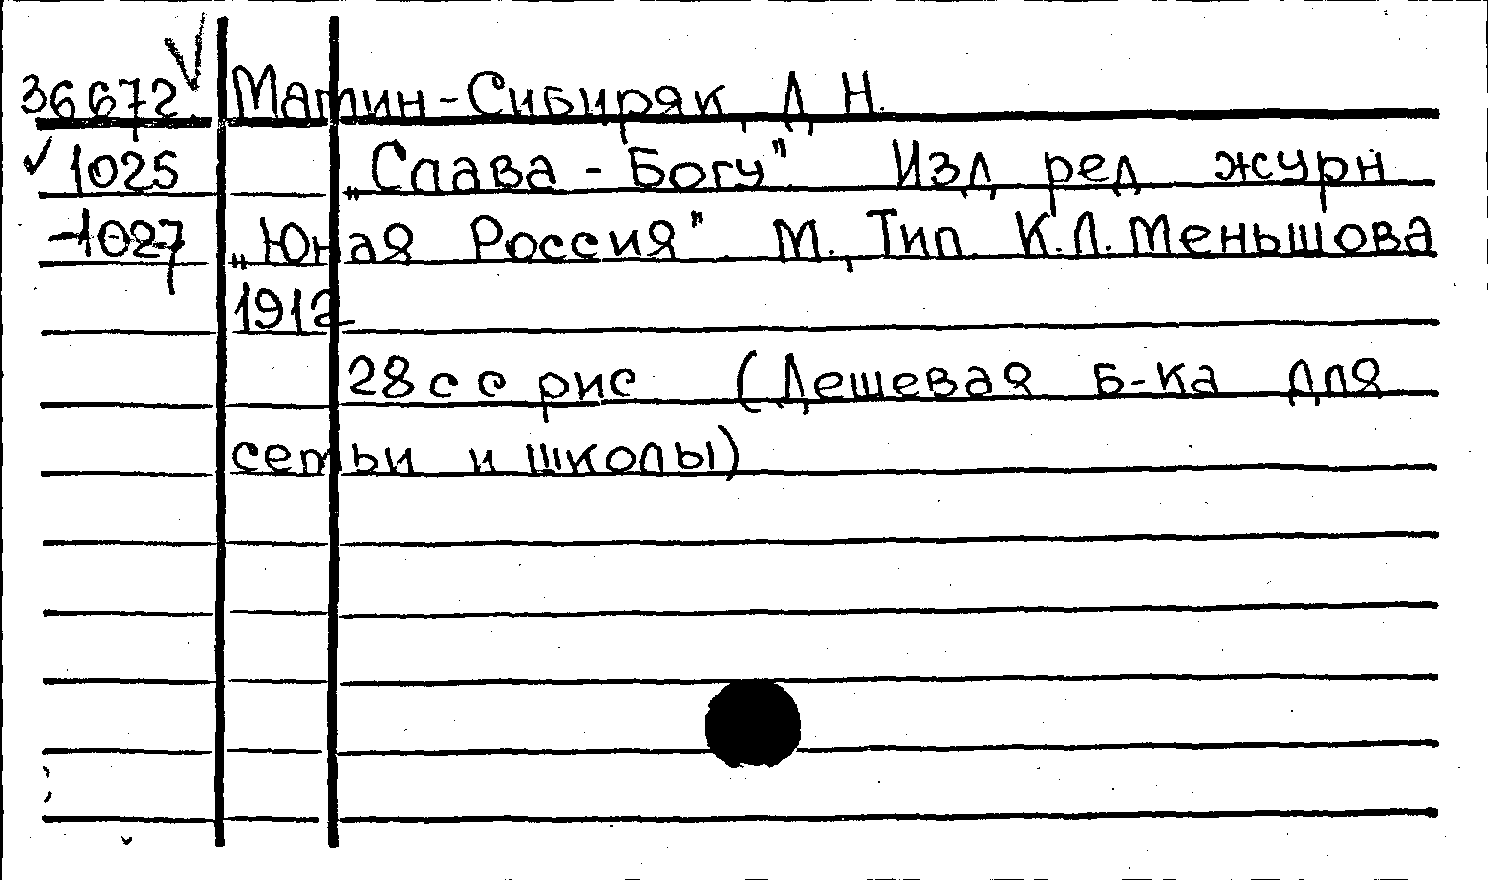 36672 Мамин-Сибиряк, Д. Н.
1025 „Слава - Богу". Изд. ред. журн.
-1027 „Юная Россия". М., Тип. К.Л. Меньшова
1912
28 с с рис (Дешевая б-ка для
семьи и школы)